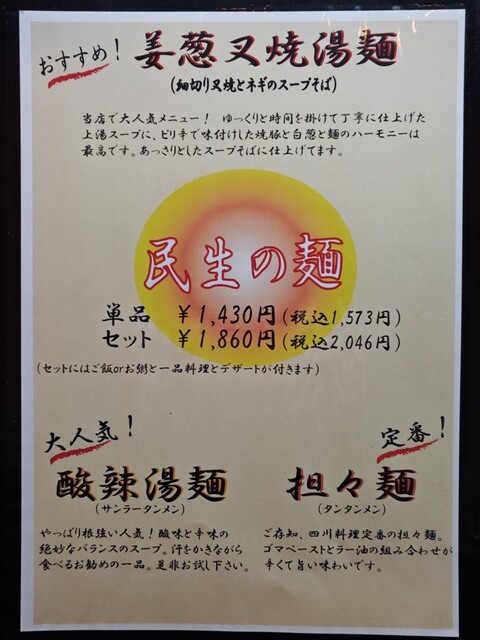 おすすめ！
姜葱叉焼湯麺
(細切り叉焼とネギのスープそば)
当店で大人気メニュー！ ゆっくりと時間を掛けて丁寧に仕上げた
上湯スープに、ピリ辛で味付けした焼豚と白葱と麺のハーモニーは
最高です。あっさりとしたスープそばに仕上げてます。
民生の麺
単品 ￥1,430円(税込1,573円)
セット ￥1,860円(税込2,046円)
(セットにはご飯orお粥と一品料理とデザートが付きます)
大人気！
酸辣湯麺
(サンラータンメン)
やっぱり根強い人気！酸味と辛味の
絶妙なバランスのスープ。汗をかきながら
食べるお勧めの一品。是非お試し下さい。
定番！
担々麺
(タンタンメン)
ご存知、四川料理定番の担々麺。
ゴマペーストとラー油の組み合わせが
辛くて旨い味わいです。